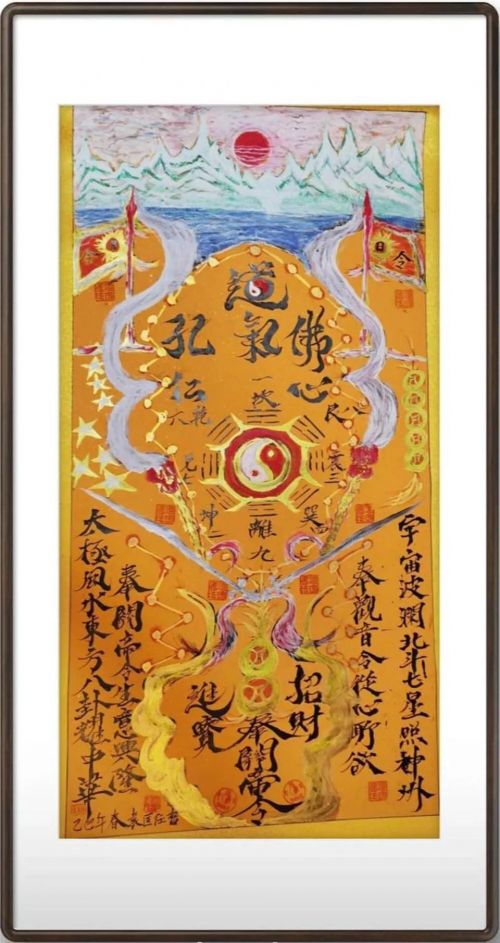 令
日
令
道氣
佛心
孔仁
一坎
乾六
艮八
兌七
震三
坤二
巽四
離九
宇宙波北斗七星照神州
奉觀音令從心所欲
招財
奉關帝令
進寶
奉關帝令生意興隆
太極風水東方八卦耀中華
巳年春